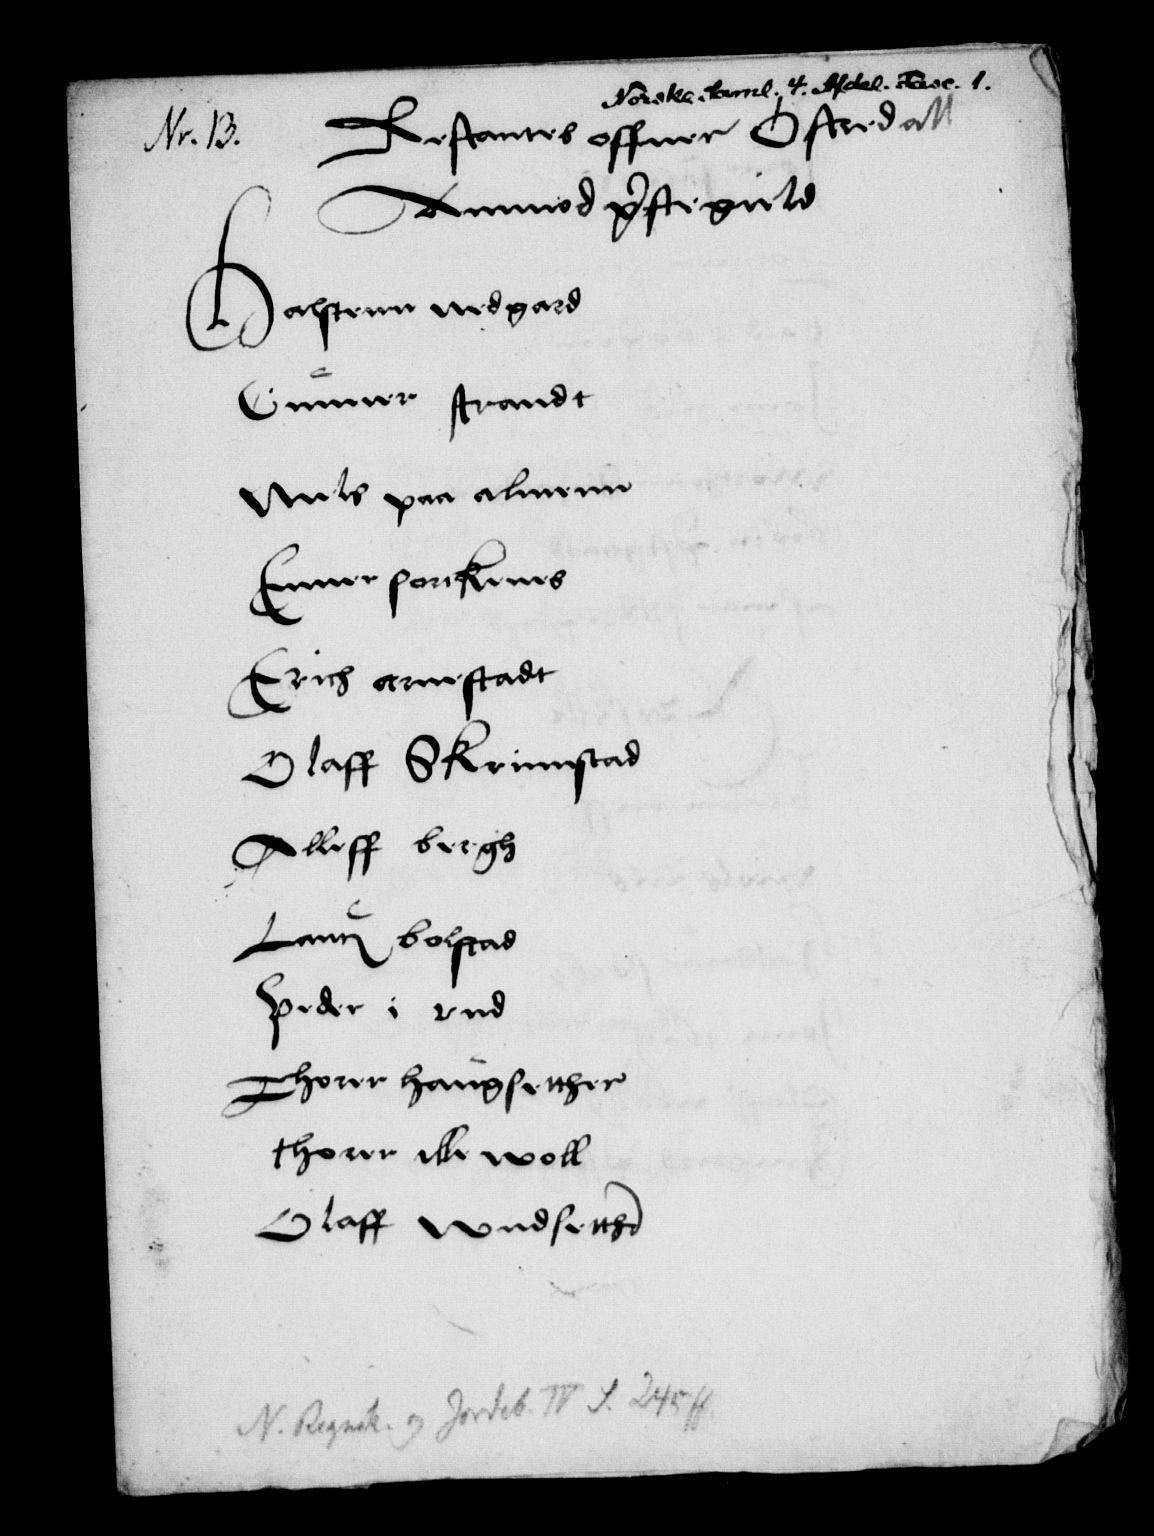 Norske Saml. 4. Afdel. Fasc. 1.
Nr. 13.
Restantes offuer Østredall
Aamod prestegield
Halstenn nedgard
Gunner strandt
Niels paa almenn
Enner sorckenes
Erich arnestadt
Olaff Skrimstad
Alleff bergh
Lauritz bolstad
Peder i rud
Thorer haugsetther
thorer ille woll
Olaff wndsetther
N. Regnsk. og Jordeb. IV S. 245 ff.